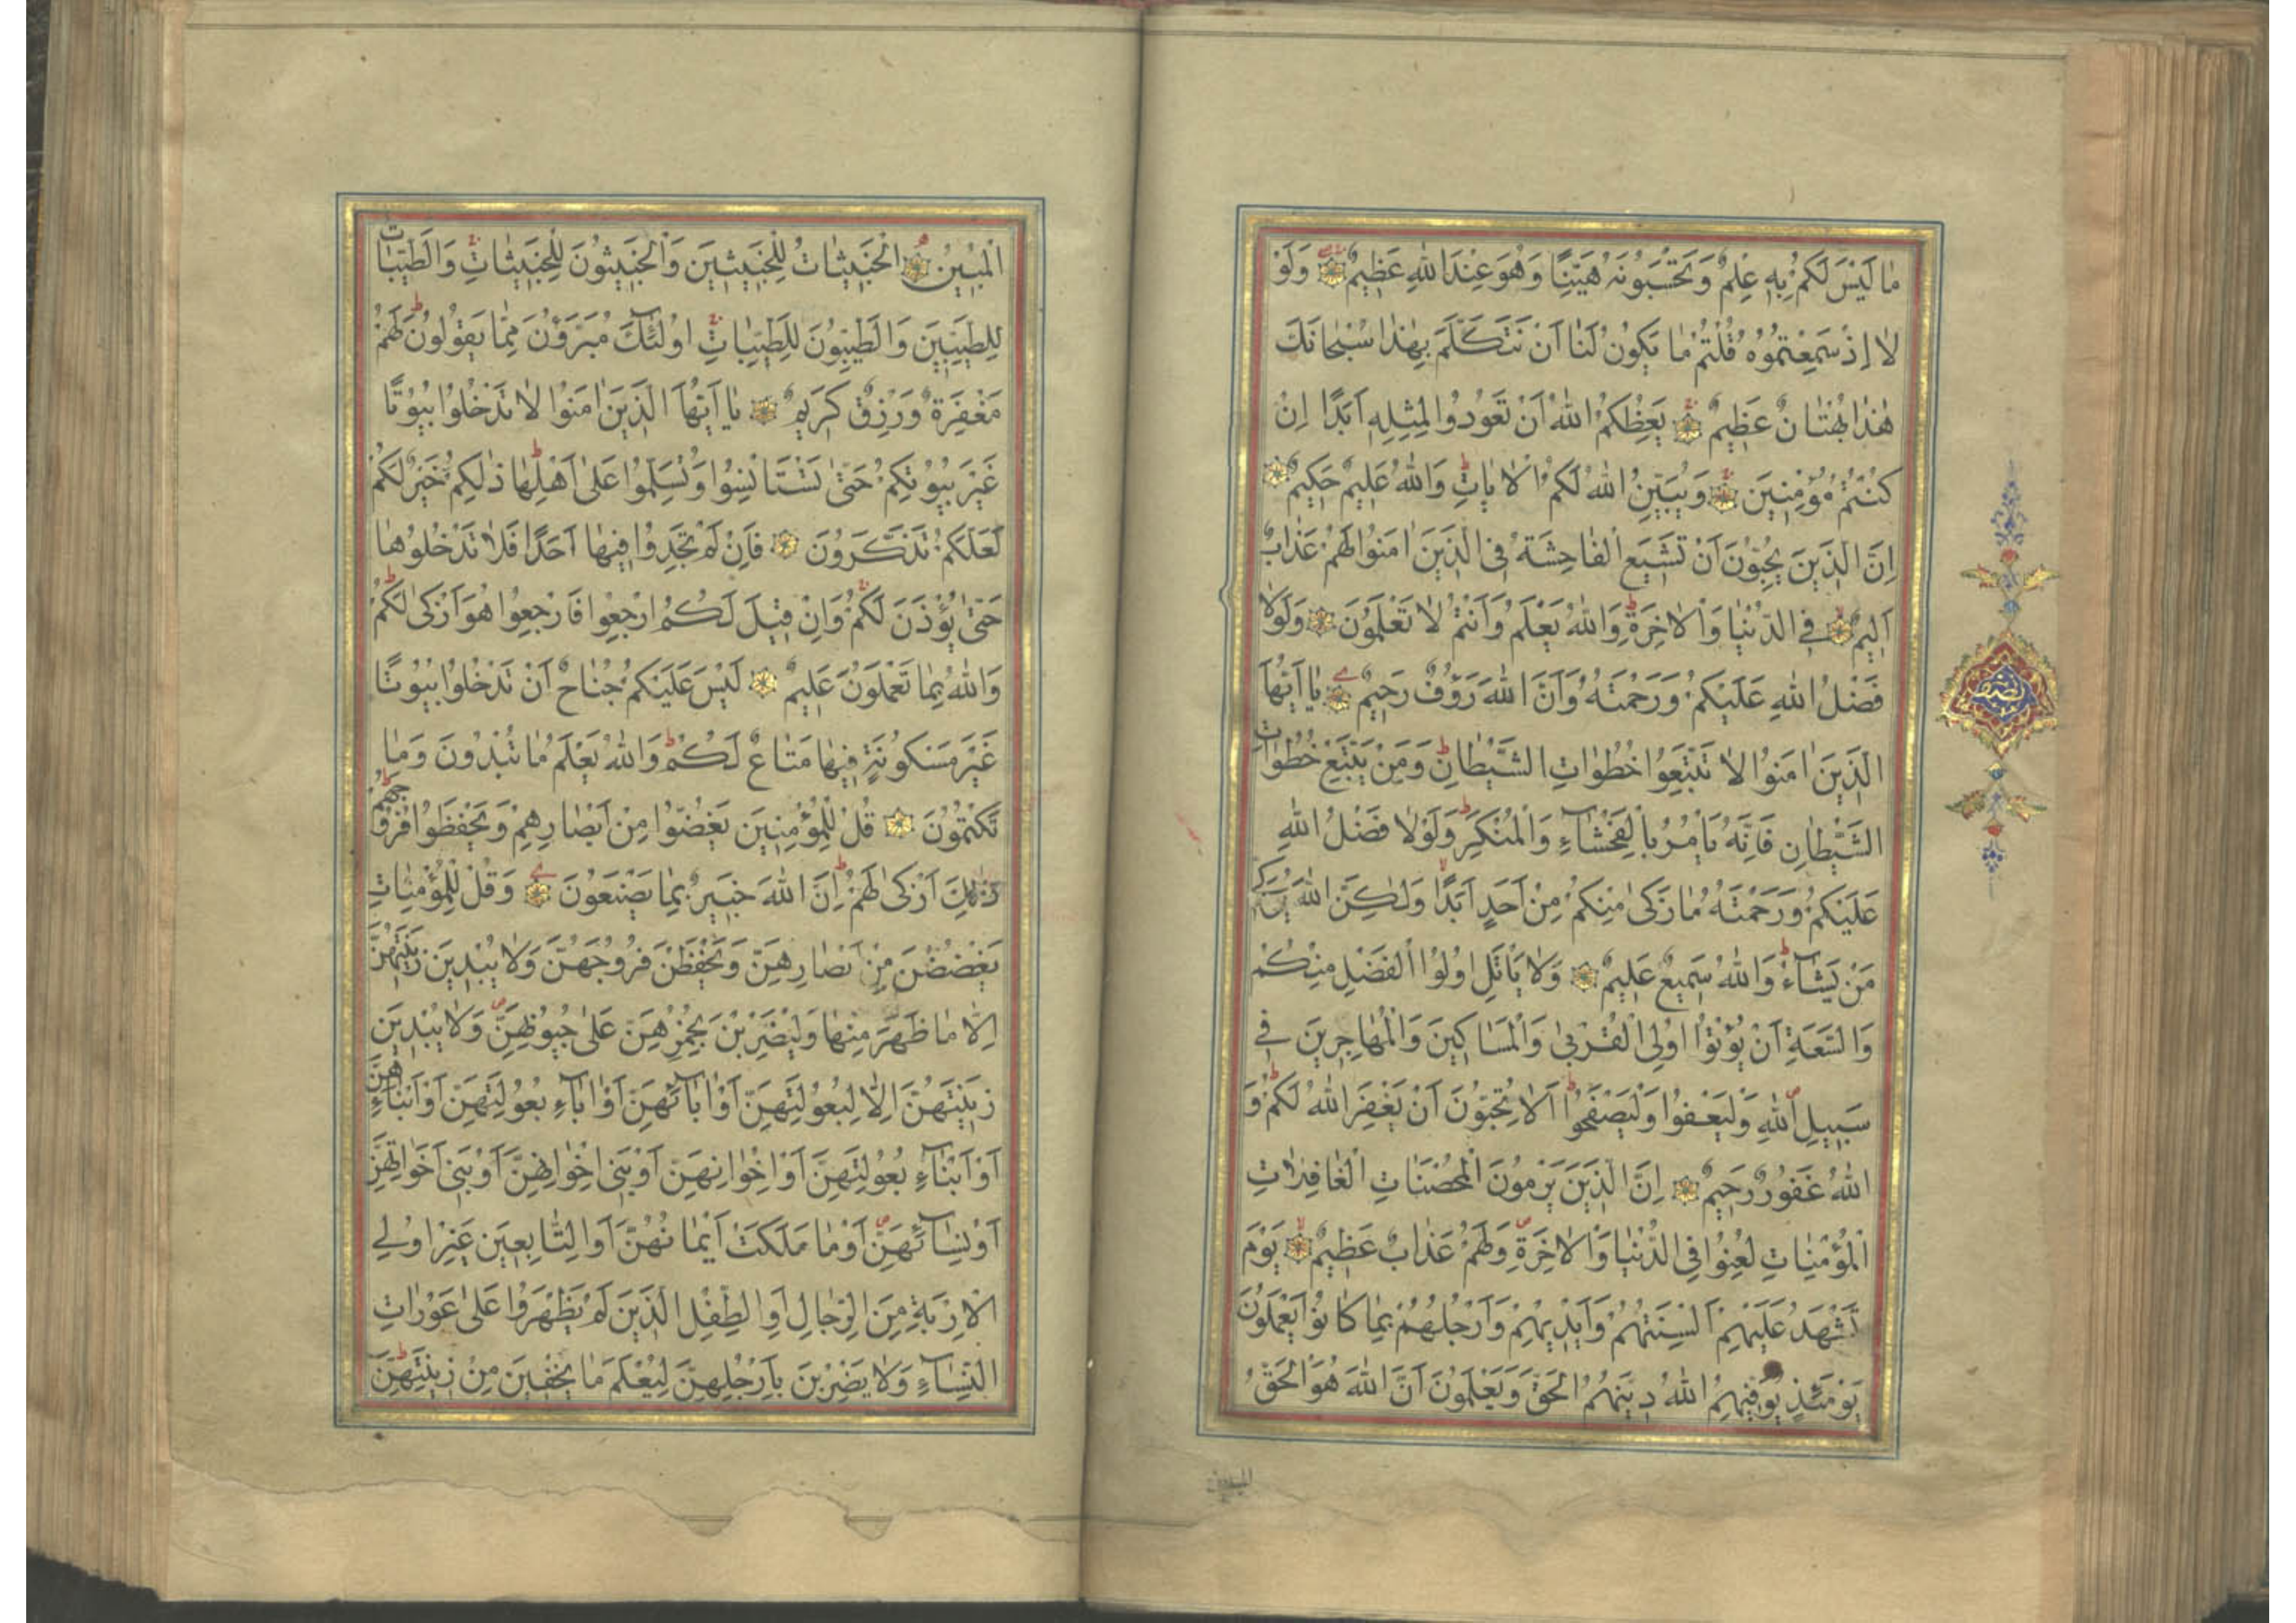 مَا لَيْسَ لَكُمْ بِهِ عِلْمٌ وَتَحْسَبُونَهُ هَيِّنًا وَهُوَ عِنْدَ اللّٰهِ عَظِيمٌ وَلَوْ
لَا اِذْ سَمِعْتُمُوهُ قُلْتُمْ مَا يَكُونُ لَنَا اَنْ نَتَكَلَّمَ بِهٰذَا سُبْحَانَكَ
هٰذَا بُهْتَانٌ عَظِيمٌ يَعِظُكُمُ اللّٰهُ اَنْ تَعُودُوا لِمِثْلِهِ اَبَدًا اِنْ
كُنْتُمْ مُؤْمِنِينَ وَيُبَيِّنُ اللّٰهُ لَكُمُ الْاٰيَاتِ وَاللّٰهُ عَلِيمٌ حَكِيمٌ
اِنَّ الَّذِينَ يُحِبُّونَ اَنْ تَشِيعَ الْفَاحِشَةُ فِي الَّذِينَ اٰمَنُوا لَهُمْ عَذَابٌ
اَلِيمٌ فِي الدُّنْيَا وَالْاٰخِرَةِ وَاللّٰهُ يَعْلَمُ وَاَنْتُمْ لَا تَعْلَمُونَ وَلَوْلَا
فَضْلُ اللّٰهِ عَلَيْكُمْ وَرَحْمَتُهُ وَاَنَّ اللّٰهَ رَؤُفٌ رَحِيمٌ يَا اَيُّهَا
الَّذِينَ اٰمَنُوا لَا تَتَّبِعُوا خُطُوَاتِ الشَّيْطَانِ وَمَنْ يَتَّبِعْ خُطُوَاتِ
الشَّيْطَانِ فَاِنَّهُ يَأْمُرُ بِالْفَحْشَاءِ وَالْمُنْكَرِ وَلَوْلَا فَضْلُ اللّٰهِ
عَلَيْكُمْ وَرَحْمَتُهُ مَا زَكٰى مِنْكُمْ مِنْ اَحَدٍ اَبَدًا وَلٰكِنَّ اللّٰهَ يُزَكِّي
مَنْ يَشَاءُ وَاللّٰهُ سَمِيعٌ عَلِيمٌ وَلَا يَأْتَلِ اُولُوا الْفَضْلِ مِنْكُمْ
وَالسَّعَةِ اَنْ يُؤْتُوا اُولِي الْقُرْبٰى وَالْمَسَاكِينَ وَالْمُهَاجِرِينَ فِي
سَبِيلِ اللّٰهِ وَلْيَعْفُوا وَلْيَصْفَحُوا اَلَا تُحِبُّونَ اَنْ يَغْفِرَ اللّٰهُ لَكُمْ وَ
اللّٰهُ غَفُورٌ رَحِيمٌ اِنَّ الَّذِينَ يَرْمُونَ الْمُحْصَنَاتِ الْغَافِلَاتِ
الْمُؤْمِنَاتِ لُعِنُوا فِي الدُّنْيَا وَالْاٰخِرَةِ وَلَهُمْ عَذَابٌ عَظِيمٌ يَوْمَ
تَشْهَدُ عَلَيْهِمْ اَلْسِنَتُهُمْ وَاَيْدِيهِمْ وَاَرْجُلُهُمْ بِمَا كَانُوا يَعْمَلُونَ
يَوْمَئِذٍ يُوَفِّيهِمُ اللّٰهُ دِينَهُمُ الْحَقَّ وَيَعْلَمُونَ اَنَّ اللّٰهَ هُوَ الْحَقُّ
المبين
نصف
الْمُبِينُ اَلْخَبِيثَاتُ لِلْخَبِيثِينَ وَالْخَبِيثُونَ لِلْخَبِيثَاتِ وَالطَّيِّبَاتُ
لِلطَّيِّبِينَ وَالطَّيِّبُونَ لِلطَّيِّبَاتِ اُولٰئِكَ مُبَرَّؤُنَ مِمَّا يَقُولُونَ لَهُمْ
مَغْفِرَةٌ وَرِزْقٌ كَرِيمٌ يَا اَيُّهَا الَّذِينَ اٰمَنُوا لَا تَدْخُلُوا بُيُوتًا
غَيْرَ بُيُوتِكُمْ حَتّٰى تَسْتَأْنِسُوا وَتُسَلِّمُوا عَلٰى اَهْلِهَا ذٰلِكُمْ خَيْرٌ لَكُمْ
لَعَلَّكُمْ تَذَكَّرُونَ فَاِنْ لَمْ تَجِدُوا فِيهَا اَحَدًا فَلَا تَدْخُلُوهَا
حَتّٰى يُؤْذَنَ لَكُمْ وَاِنْ قِيلَ لَكُمُ ارْجِعُوا فَارْجِعُوا هُوَ اَزْكٰى لَكُمْ
وَاللّٰهُ بِمَا تَعْمَلُونَ عَلِيمٌ لَيْسَ عَلَيْكُمْ جُنَاحٌ اَنْ تَدْخُلُوا بُيُوتًا
غَيْرَ مَسْكُونَةٍ فِيهَا مَتَاعٌ لَكُمْ وَاللّٰهُ يَعْلَمُ مَا تُبْدُونَ وَمَا
تَكْتُمُونَ قُلْ لِلْمُؤْمِنِينَ يَغُضُّوا مِنْ اَبْصَارِهِمْ وَيَحْفَظُوا فُرُوجَهُمْ
ذٰلِكَ اَزْكٰى لَهُمْ اِنَّ اللّٰهَ خَبِيرٌ بِمَا يَصْنَعُونَ وَقُلْ لِلْمُؤْمِنَاتِ
يَغْضُضْنَ مِنْ اَبْصَارِهِنَّ وَيَحْفَظْنَ فُرُوجَهُنَّ وَلَا يُبْدِينَ زِينَتَهُنَّ
اِلَّا مَا ظَهَرَ مِنْهَا وَلْيَضْرِبْنَ بِخُمُرِهِنَّ عَلٰى جُيُوبِهِنَّ وَلَا يُبْدِينَ
زِينَتَهُنَّ اِلَّا لِبُعُولَتِهِنَّ اَوْ اٰبَائِهِنَّ اَوْ اٰبَاءِ بُعُولَتِهِنَّ اَوْ اَبْنَائِهِنَّ
اَوْ اَبْنَاءِ بُعُولَتِهِنَّ اَوْ اِخْوَانِهِنَّ اَوْ بَنِي اِخْوَانِهِنَّ اَوْ بَنِي اَخَوَاتِهِنَّ
اَوْ نِسَائِهِنَّ اَوْ مَا مَلَكَتْ اَيْمَانُهُنَّ اَوِ التَّابِعِينَ غَيْرِ اُولِي
الْاِرْبَةِ مِنَ الرِّجَالِ اَوِ الطِّفْلِ الَّذِينَ لَمْ يَظْهَرُوا عَلٰى عَوْرَاتِ
النِّسَاءِ وَلَا يَضْرِبْنَ بِاَرْجُلِهِنَّ لِيُعْلَمَ مَا يُخْفِينَ مِنْ زِينَتِهِنَّ